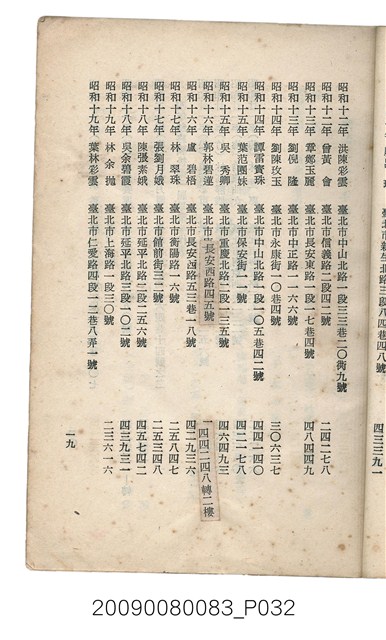 臺北市新生北路三段八四巷四八號 四三三九一
昭和十二年 洪陳彩雲 臺北市中山北路一段三三巷二〇衖九號
昭和十二年 曾黃會 臺北市信義路二段四二號 二四二七八
昭和十三年 章鄭玉麗 臺北市長安東路一段一七巷四號 四八四四九
昭和十三年 劉倪隆 臺北市中正路一一六六號
昭和十四年 劉陳玫玉 臺北市永康街一〇巷四號 三〇六三七
昭和十四年 譚雷寶珠 臺北市中山北路一段一〇五巷四二號 四四二四〇
昭和十五年 葉范團妹 臺北市保安街一一號 四二一七八
昭和十五年 吳秀卿 臺北市重慶北路二段一三五號 四六四九三
昭和十六年 郭林碧蓮 臺北市長安西路四五號 一四四二四八轉二樓
昭和十六年 盧碧梧 臺北市長安西路五三巷一八號 四二九三六
昭和十七年 林翠珠 臺北市衡陽路一六號 二五八四七
昭和十七年 張劉月娥 臺北市館前街三二號 二五三四八
昭和十八年 陳張素娥 臺北市延平北路二段二五六號 四五七四二
昭和十八年 吳余碧霞 臺北市延平北路三段一〇二號 四三九三一
昭和十九年 林余拋 臺北市上海路一段三〇號 二三六一六
昭和十九年 葉林彩雲 臺北市仁愛路四段一二巷八弄一號
一九
20090080083_P032